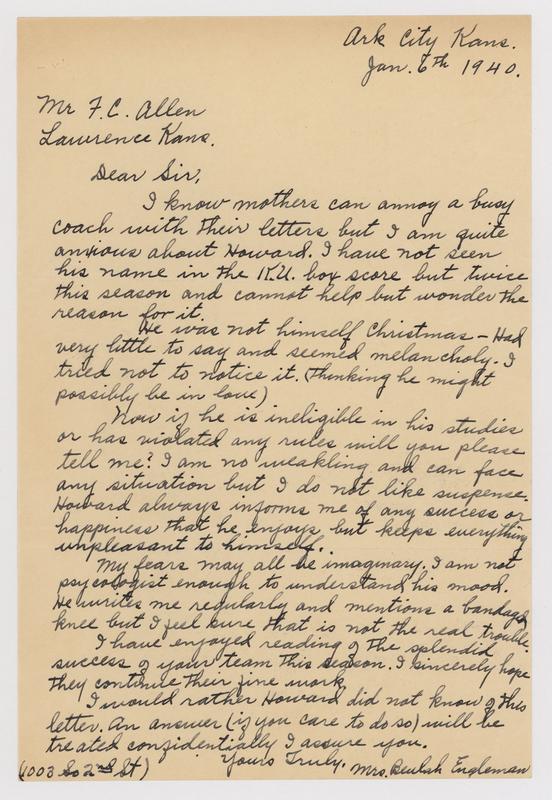 Ark City Kans.
Jan. 6th 1940.
Mr F. C. Allen
Lawrence Kans.
Dear Sir,
I know mothers can annoy a busy
coach with their letters but I am quite
anxious about Howard. I have not seen
his name in the K.U. box score but twice
this season and cannot help but wonder the
reason for it.
He was not himself Christmas - Had
very little to say and seemed melancholy. I
tried not to notice it. (Thinking he might
possibly be in love)
Now if he is ineligible in his studies
or has violated any rules will you please
tell me? I am no weakling and can face
any situation but I do not like suspense.
Howard always informs me of any success or
happiness that he enjoys but keeps everything
unpleasant to himself..
My fears may all be imaginary. I am not
psycologist enough to understand his mood.
He writes me regularly and mentions a bandaged
knee but I feel sure that is not the real trouble.
I have enjoyed reading of the splendid
success of your team this season. I sincerely hope
they continue their fine work.
I would rather Howard did not know of this
letter. An answer (if you care to do so) will be
treated confidentially I assure you.
Yours Truly,
(1003 So 2nd St) Mrs. Beulah Engleman